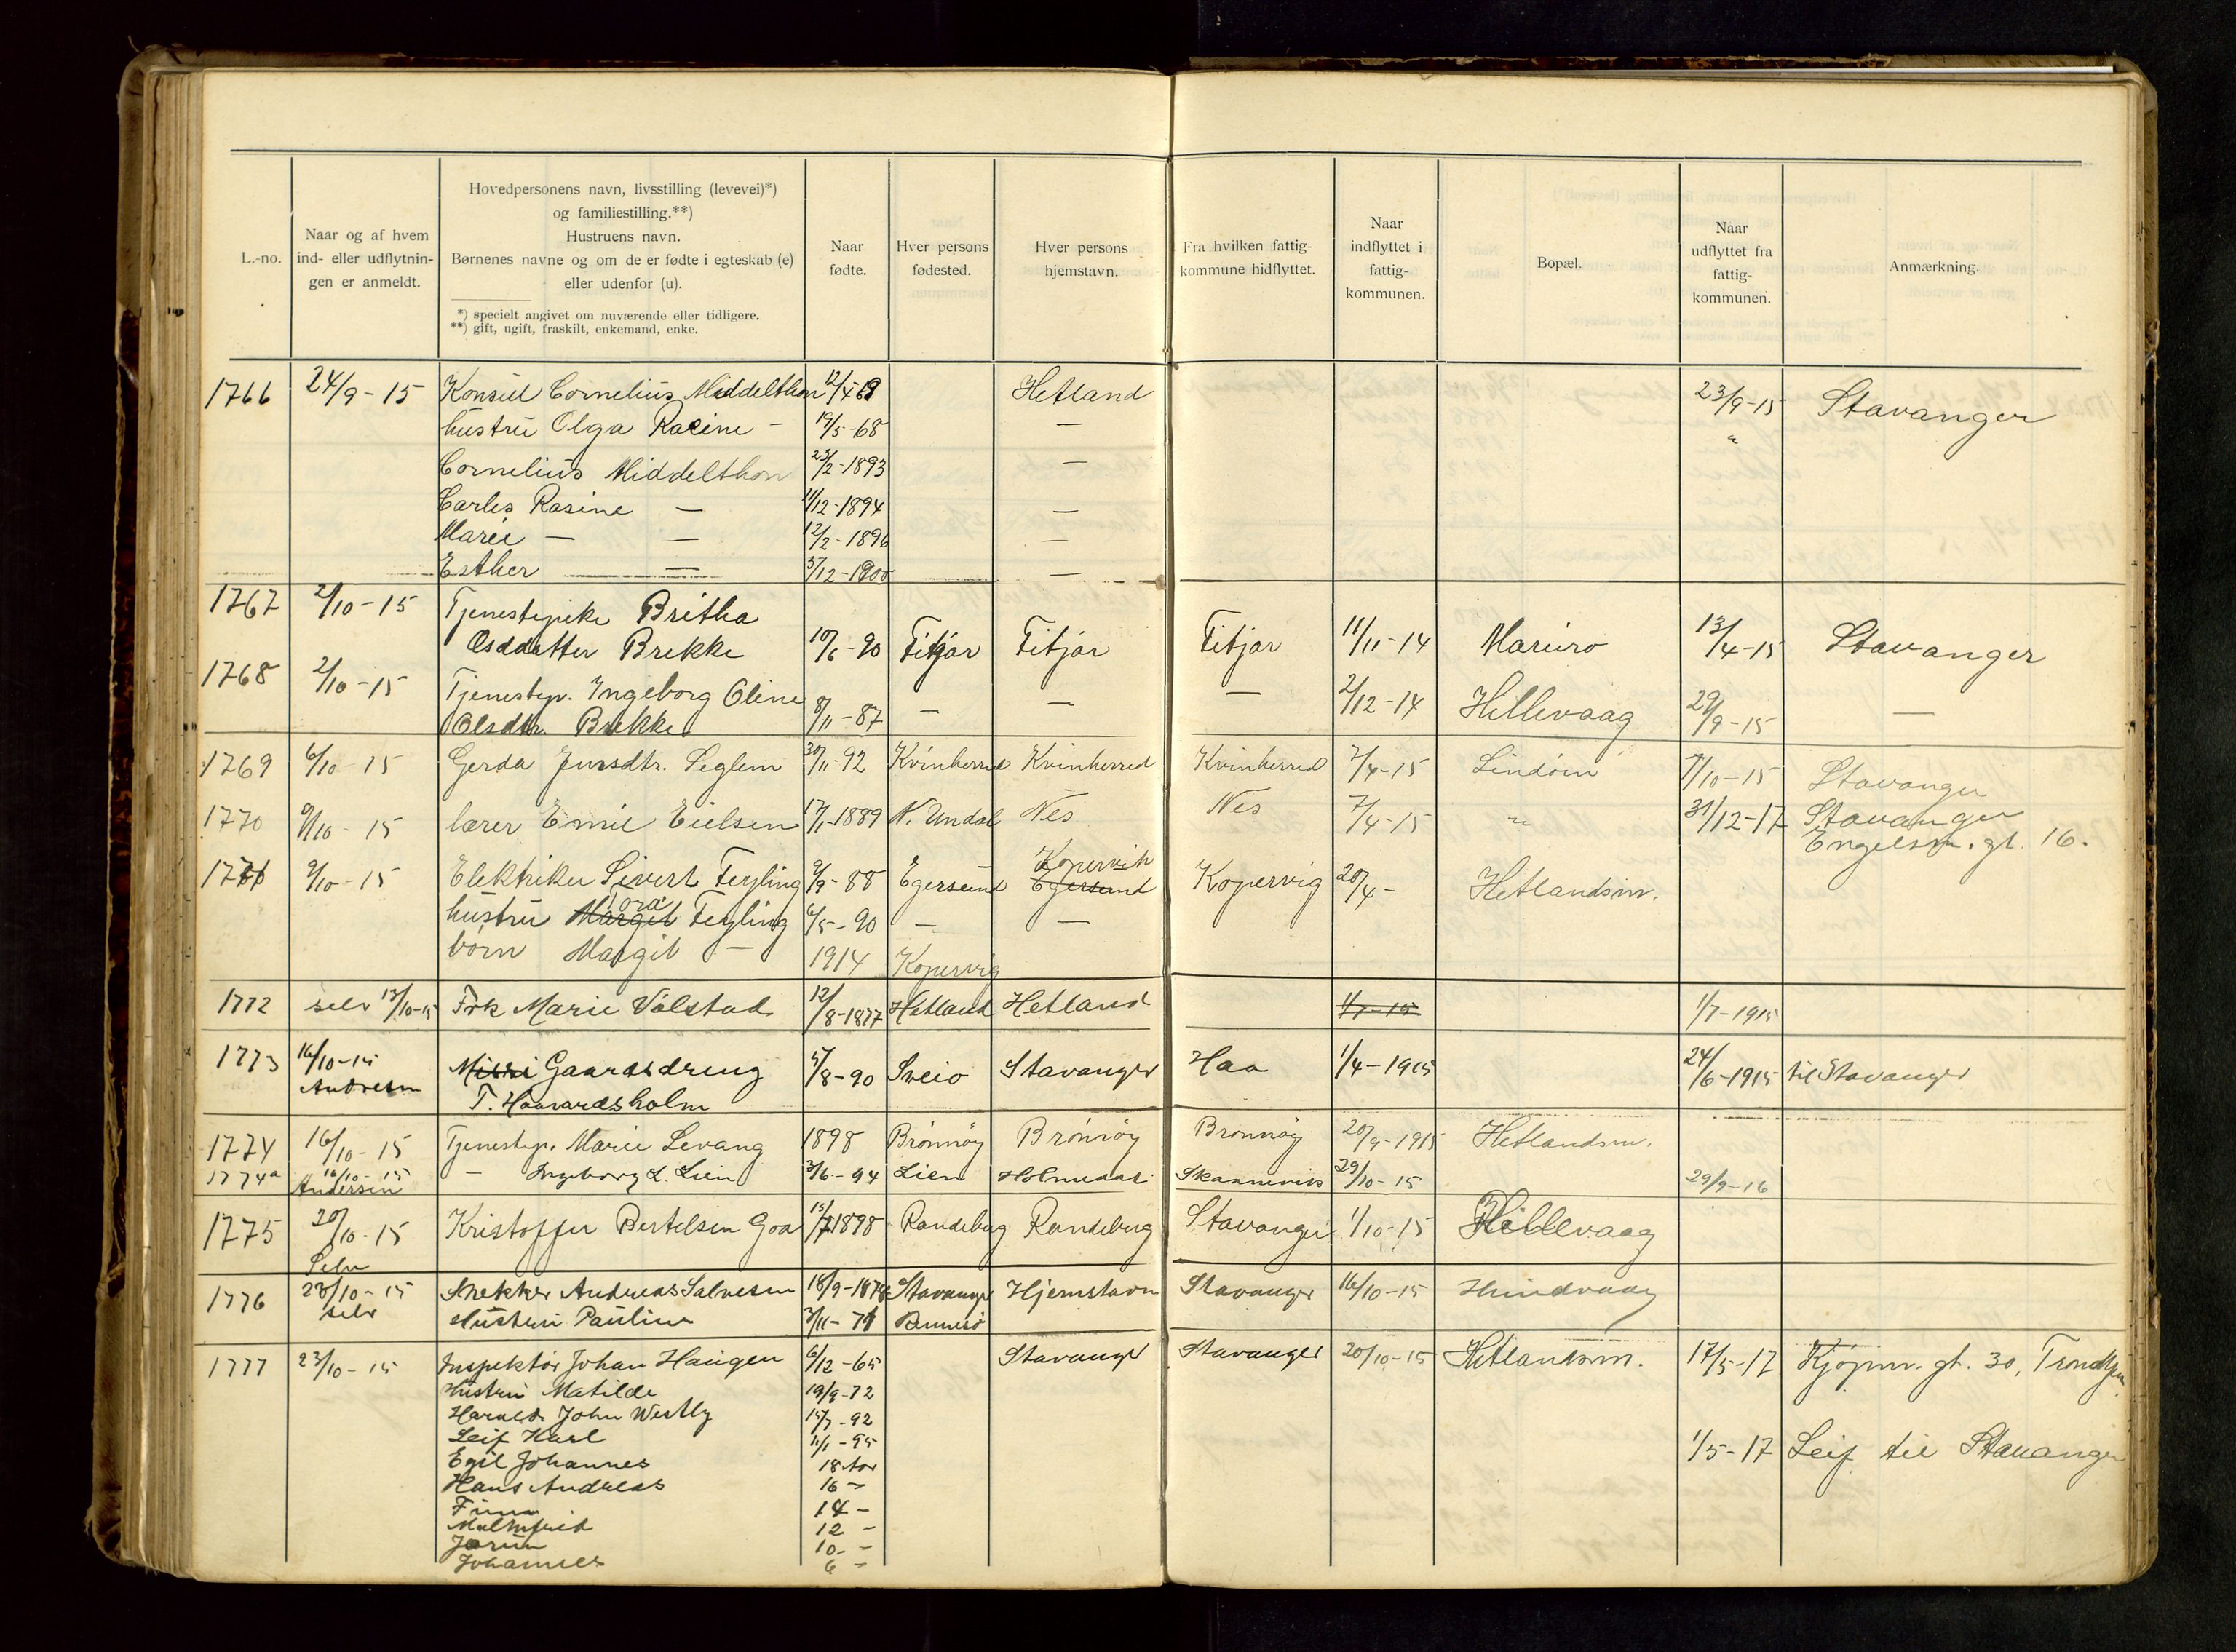 L.-no.
Naar og af hvem
ind- eller udflytnin-
gen er anmeldt.
Hovedpersonens navn, livsstilling (levevei)*)
og familiestilling.**)
Hustruens navn.
Børnenes navne og om de er fødte i egteskab (e)
eller udenfor (u).
*) specielt angivet om nuværende eller tidligere.
**) gift, ugift, fraskilt, enkemand, enke.
Naar
fødte.
Hver persons
fødested.
Hver persons
hjemstavn.
Fra hvilken fattig-
kommune hidflyttet.
Naar
indflyttet i
fattig-
kommunen.
Bopæl.
Naar
udflyttet fra
fattig-
kommunen.
Anmærkning.
1766 24/9-15 Konsul Cornelius Middelthon 12/4 69 Hetland 23/9-15 Stavanger
hustru Olga Racine - 19/5-68 — "
Cornelius Middelthon 23/2-1893 —
Carles Rasine — 11/12-1894 —
Marie — — 12/2-1896 —
Esther — 3/12-1900 —
1767 2/10-15 Tjenestepike Britha
Osddatter Brekke 10/6-90 Fitjar Fitjar Fitjar 11/11-14 Mariero 13/4-15 Stavanger
1768 2/10-15 Tjenestep. Ingeborg Oline
Olsdtr. Brekke 8/11-87 — — — 2/12-14 Hillevaag 29/9-15 —
1769 6/10-15 Gerda Jensdtr. Seglem 30/11-92 Kvinherred Kvinherred Kvinherred 7/4-15 Lindøen 7/10-15 Stavanger
1770 9/10-15 lærer Emil Eielsen 17/1-1889 N. Undal Nes Nes 7/4-15 " 31/12-17 Stavanger
Engelsm. gt. 16.
1771 9/10-15 Elektriker Sivert Feyling 9/9-88 Egersund Kopervik Egersund Kopervig 20/4- Hetlandsm.
hustru Margit ora Feyling 6/5-90 — —
børn Margit — 1914 Kopervig
1772 selv 13/10-15 Frk Marie Vølstad 12/8-1877 Hetland Hetland 1/7-15 1/7-1915
1773 16/10-15 Gaardsdreng 5/8-90 Sveio Stavanger Haa 1/4-1915 24/6-1915 til Stavanger
T. Haavardsholm
1774 16/10-15 Tjenestep. Marie Levang 1898 Brønnøy Brønnøy Brønnøy 20/9-1915 Hetlandsm.
1774a 16/10-15 - Ingeborg L. Lien 3/6-94 Lien Holmedal Skaanevik 29/10-15 29/9-16
Andersen
1775 20/10-15 Kristoffer Bertelsen Goa 15/7 1898 Randeberg Randeberg Stavanger 1/10-15 Hillevaag
Selv
1776 23/10-15 Snekker Andreas Salvesen 18/9-1878 Stavanger Hjemstavn Stavanger 16/10-15 Hindvaag
selv Hustru Pauline 3/11-71 Rennesø
1777 23/10-15 Inspektør Johan Haugen 6/12-65 Stavanger Stavanger 20/10-15 Hetlandsm. 17/5-17 Kjøpm. gt. 30, Trondhjem
Hustru Matilde 19/9-72
Harald John Westly 15/7-92
Leif Karl 11/1-95 1/5-17 Leif til Stavanger
Egil Johannes 18 Aar
Hans Andreas 16 -
Finn 14 -
Malmfrid 12 -
Jorun 10 -
Johannes 6 -